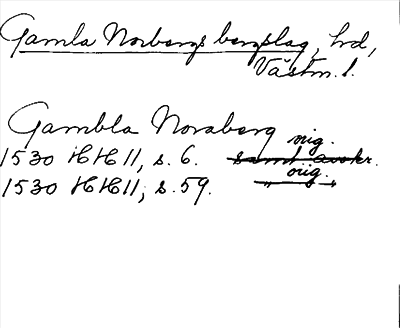 Gamla Norbergs bergslag, hrd,
Västm. l.
Gambla Noraberg
1530 HH 11, s. 6. samt avskr. orig.
1530 HH 11, s. 59. " " orig.